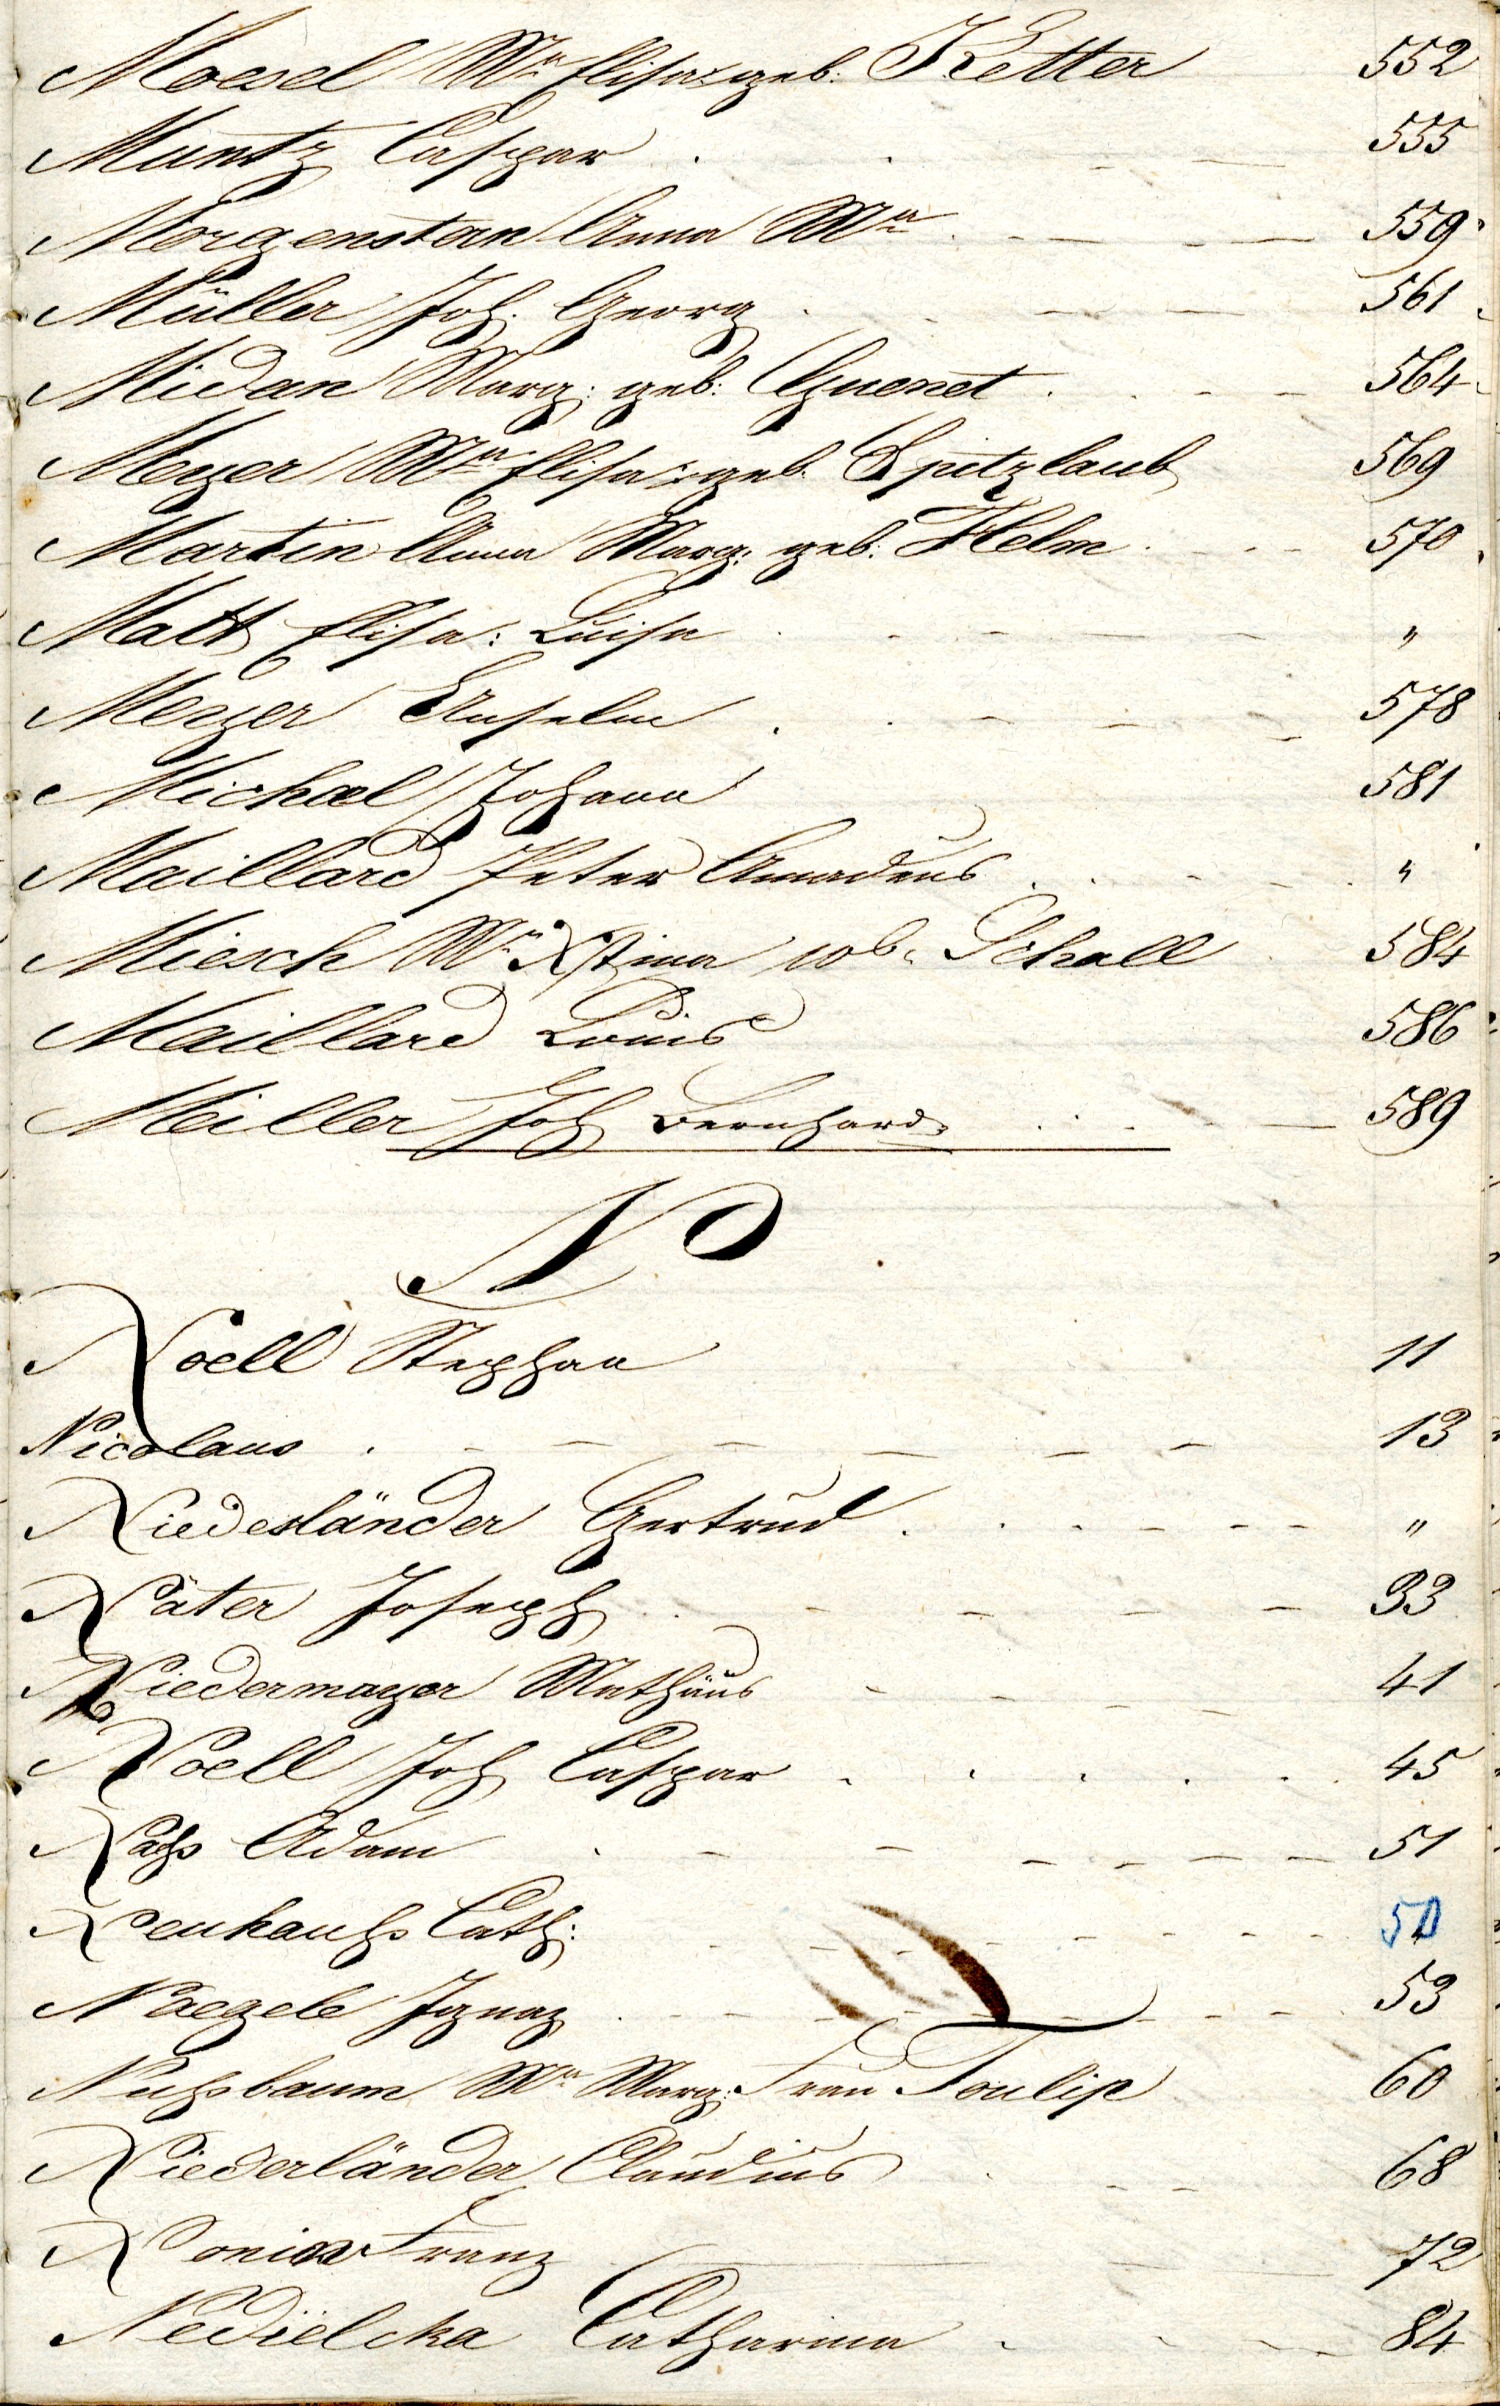 Moesel Mª Elisa: geb: Ketter 552
Muntz Caspar . . - — 555
Morgenstern Anna Mª . - — - — 559
Müller Joh. Georg . . — - — 561
Midan Marg: geb: Guenet . . - - 564
Meyer Mª Elisa: geb. Spitzlaub 569
Martin Anna Marg: geb: Helm . - - 570
Matt Elisa: Luise . - - — - — "
Meyer Anselm . . - - — - 578
Michael Johann 581
Maillard Peter Amadeus . . - - . "
Miesch Mª Xstina wb. Schall 584
Maillard Louis 586
Miller Joh Bernhard . . - — 589
N
Noell Stephan 11
Nicolaus . - — — — — - 13
Niederländer Gertrud . . . - - - - "
Näter Joseph . - - - - — 33
Niedermayer Mathäus - - - - - 41
Noell Joh Caspar . . . . . . 45
Nachs Adam . - - - - - — 51
Neuhauhs Cath: - - - - - - - 51
Naegele Ignaz . - - - - - - 53
Nuhsbaum Mª Marg: Frau Toulip 60
Niederländer Claudius . - - 68
Franz — — 72
Nedielcka Catharina . - - - 84